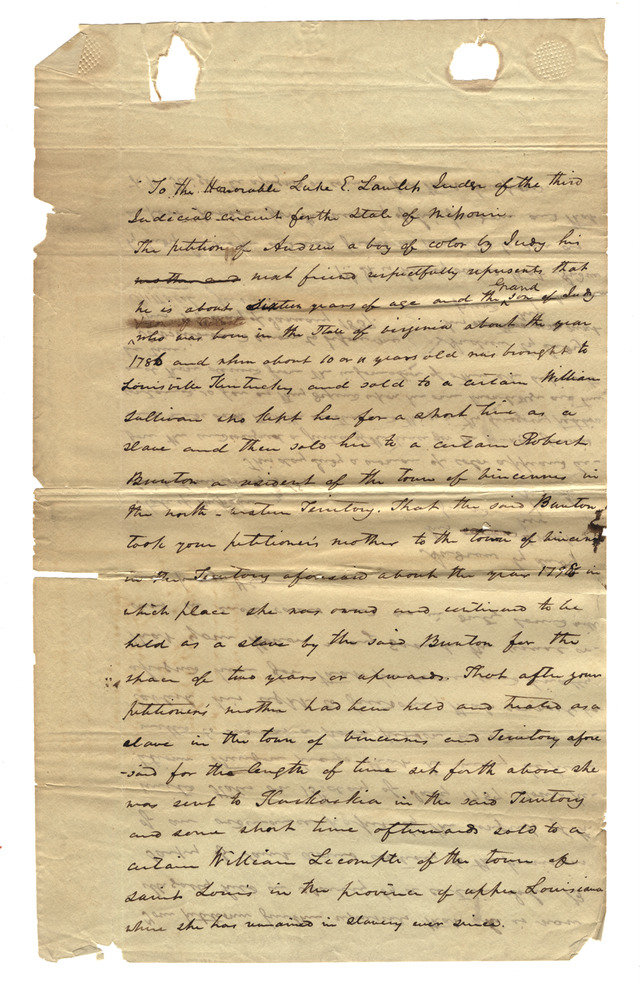 To the Honorable Luke E. Lawless Judge of the third
Judicial circuit for the State of Missouri.
The petition of Andrew a boy of color by Judy his
mother and next friend respectfully represents that
he is about sixteen years of age and the Grand son of Judy
who was born in the State of virginia about the year
1786 and when about 10 or 11 years old was brought to
Louisville Kentucky and sold to a certain William
Sullivan who kept her for a short time as a
slave and then sold her to a certain Robert
Bunton a resident of the town of vincennes in
the north-western Territory. That the said Bunton
took your petitioner's mother to the town of vincennes
in the Territory aforesaid about the year 1798 in
which place she was owned and continued to be
held as a slave by the said Bunton for the
space of two years or upwards. That after your
petitioner's mother had been held and treated as a
slave in the town of vincennes and Territory afore
-said for the length of time set forth above she
was sent to Kaskaskia in the said Territory
and some short time afterwards sold to a
certain William Lecompte of the town of
saint Louis in the province of upper Louisiana
where she has remained in slavery ever since.